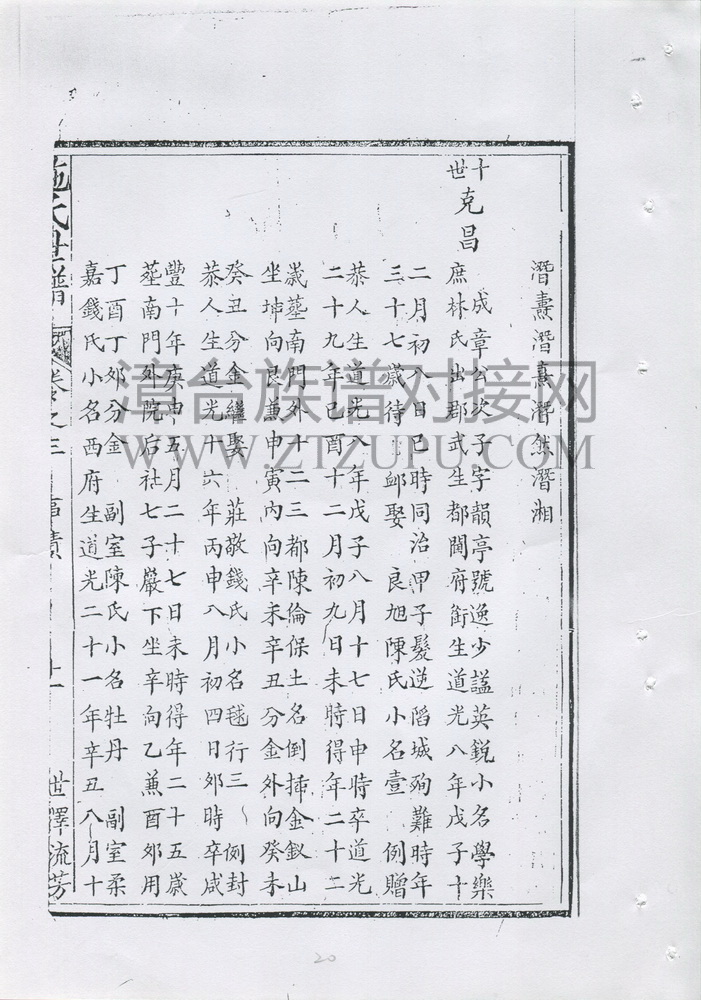 潛燾潛熹潛然潛湘
十世
克昌
成章公次子字韻亭號逸少諡英銳小名學樂
庶林氏出郡武生都閫府銜生道光八年戊子十
二月初八日巳時同治甲子髮逆陷城殉難時年
三十七歲待卹娶 良旭陳氏小名壹 例贈
恭人生道光八年戊子八月十七日申時卒道光
二十九年己酉十二月初九日未時得年二十二
歲墓南門外十二三都陳倫保土名倒插金釵山
坐坤向艮兼申寅內向辛未辛丑分金外向癸未
癸丑分金繼娶 莊敬錢氏小名毬行三 例封
恭人生道光十六年丙申八月初四日卯時卒咸
豐十年庚申五月二十七日未時得年二十五歲
塟南門外院后社七子巖下坐辛向乙兼酉卯用
丁酉丁卯分金 副室陳氏小名牡丹 副室柔
嘉錢氏小名西府生道光二十一年辛丑八月十
施氏世譜 卷之三 事蹟 十一 世澤流芳
漳台族谱对接网
WWW.ZTZUPU.COM
20